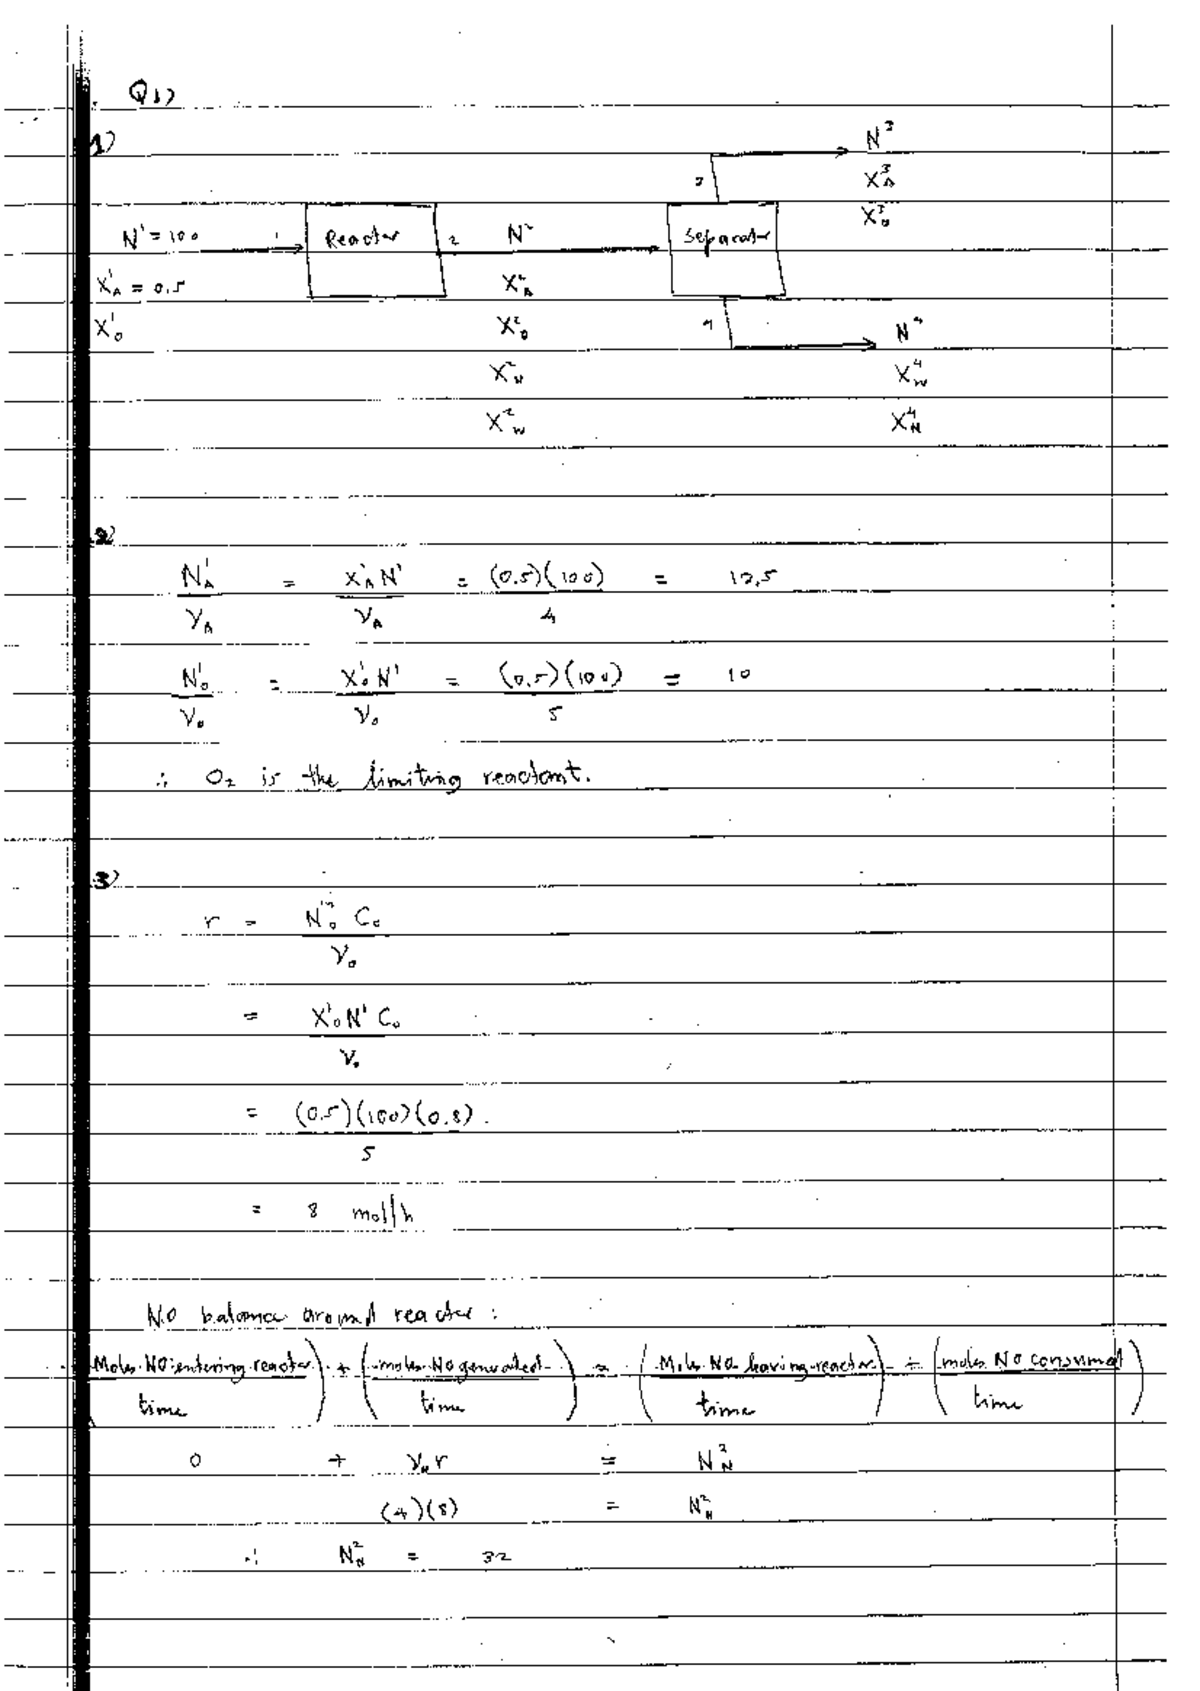 Q1)
1)
N¹ = 100
X¹_A = 0.5
X¹_O
1
Reactor
2
N²
X²_A
X²_O
X²_N
X²_W
Separator
3
N³
X³_A
X³_O
4
N⁴
X⁴_W
X⁴_N
2)
N¹_A / ν_A = X¹_A N¹ / ν_A = (0.5)(100) / 4 = 12.5
N¹_O / ν_O = X¹_O N¹ / ν_O = (0.5)(100) / 5 = 10
∴ O₂ is the limiting reactant.
3)
r = N^in_O C_O / ν_O
= X¹_O N¹ C_O / ν_O
= (0.5)(100)(0.8) / 5
= 8 mol/h
NO balance around reactor :
(Moles NO entering reactor / time) + (moles NO generated / time) = (Moles NO leaving reactor / time) + (moles NO consumed / time)
0 + ν_N r = N²_N
(4)(8) = N²_N
∴ N²_N = 32